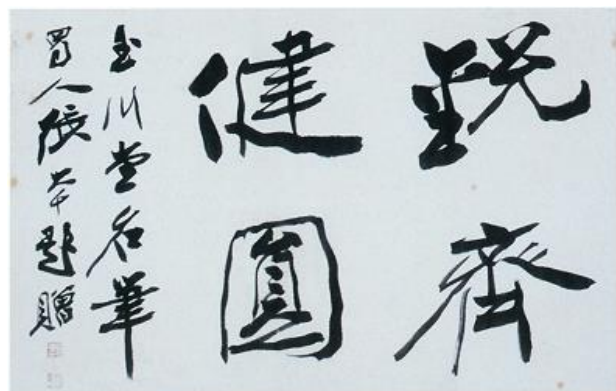 銳齊
健圓
玉川堂名筆
蜀人張大千題贈